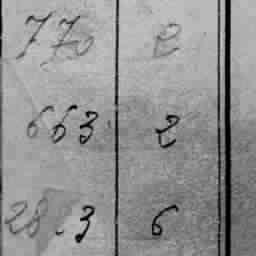 770 2
663 2
28.3 6